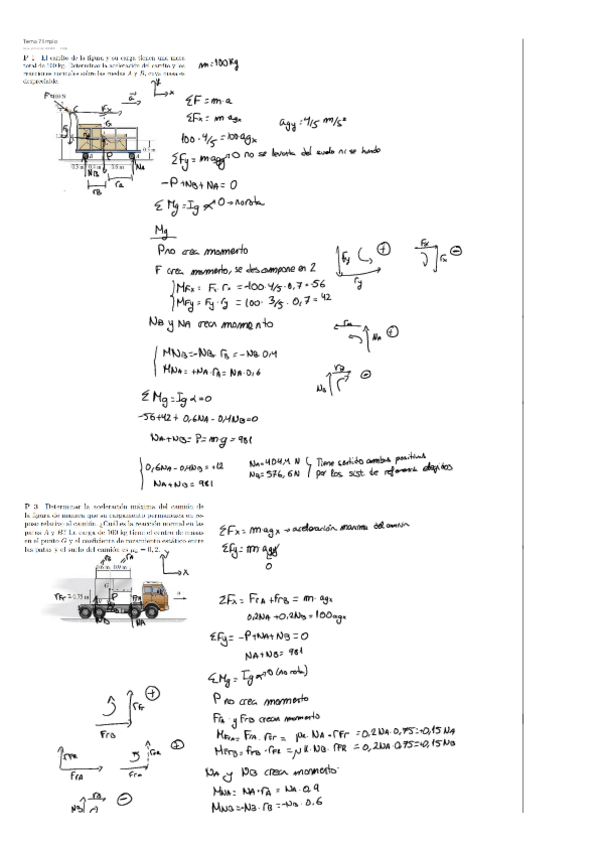 Tema 7 Simplo
P 1 El carrito de la figura y su carga tienen una masa
total de 100 kg. Determinar la aceleración del carrito y las
reacciones normales sobre las ruedas A y B, cuya masa es
despreciable.
m=100Kg
ΣF = m·a
ΣFx = m agx
100·4/5 = 100agx
agy = 4/5 m/s²
ΣFy = m agy → 0 no se levanta del suelo ni se hunde
-P+NB+NA = 0
ΣMg = Ig α → 0 → no rota
Mg
P no crea momento
F crea momento, se descompone en 2
MFx = Fx·rx = -100·4/5·0,7 = -56
MFy = Fy·ry = 100·3/5·0,7 = 42
NB y NA crean momento
MNB = -NB·rB = -NB·0,4
MNA = +NA·rA = NA·0,6
ΣMg = Ig α = 0
-56+42+0,6NA-0,4NB=0
NA+NB = P = mg = 981
0,6NA-0,4NB = +12
NA+NB = 981
NA=404,4 N
NB=576,6N
Tiene sentido ambas positivas
por los sist de referencia elegidos
P 3 Determinar la aceleración máxima del camión de
la figura de manera que su cargamento permanezca en re-
poso relativo al camión. ¿Cuál es la reacción normal en las
patas A y B? La carga de 100 kg tiene el centro de masas
en el punto G y el coeficiente de rozamiento estático entre
las patas y el suelo del camión es μs = 0,2.
ΣFx = m agx → aceleración máxima del camión
ΣFy = m agy
0
ΣFx = FrA + FrB = m·agx
0,2NA+0,2NB = 100agx
ΣFy = -P+NA+NB = 0
NA+NB = 981
ΣMg = Ig α → 0 (no rota)
P no crea momento
FrA y FrB crean momento
MFrA = FrA·rFr = μk·NA·rFr = 0,2NA·0,75=+0,15NA
MFrB = FrB·rFR = μK·NB·rFR = 0,2NA·0,75=+0,15NB
NA y NB crean momento
MNA = NA·rA = NA·0,9
MNB = -NB·rB = -NB·0,6